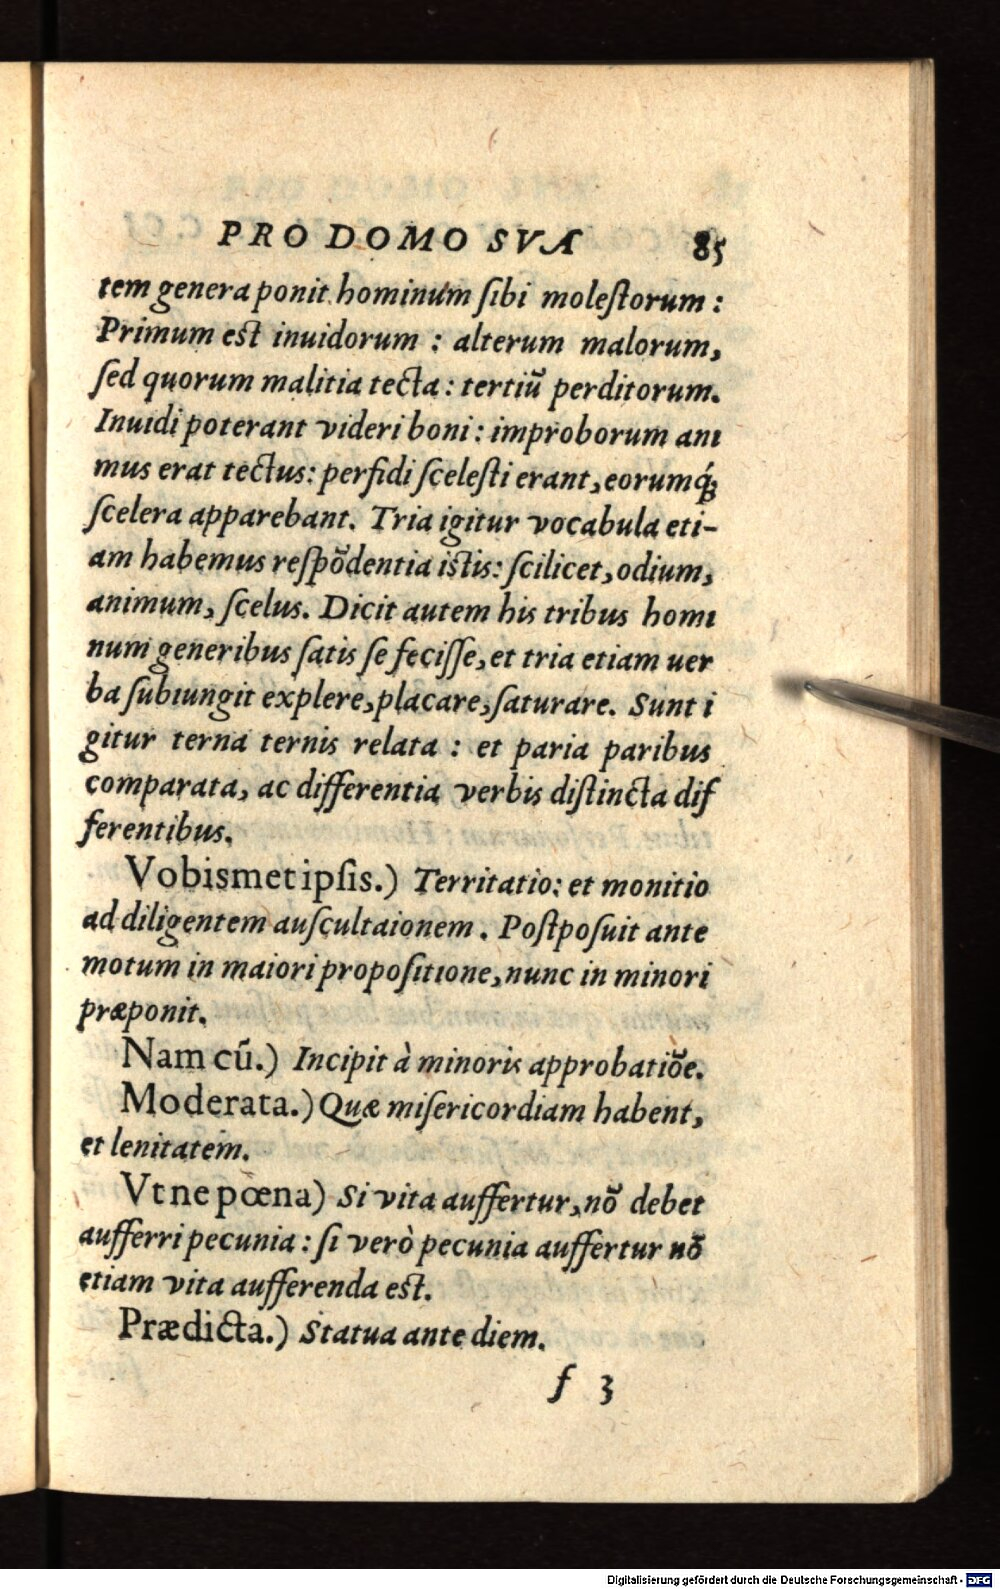 PRO DOMO SVA 85
tem genera ponit hominum ſibi moleſtorum :
Primum est inuidorum : alterum malorum,
ſed quorum malitia tecta : tertiū perditorum.
Inuidi poterant videri boni : improborum ani
mus erat tectus: perfidi ſceleſti erant, eorumq́;
ſcelera apparebant. Tria igitur vocabula eti-
am habemus reſpōdentia istis: ſcilicet, odium,
animum, ſcelus. Dicit autem his tribus homi
num generibus ſatis ſe feciſſe, et tria etiam uer
ba ſubiungit explere, placare, ſaturare. Sunt i
gitur terna ternis relata : et paria paribus
comparata, ac differentia verbis diſtincta dif
ferentibus.
Vobismet ipſis.) Territatio: et monitio
ad diligentem auſcultaionem. Poſtpoſuit ante
motum in maiori propoſitione, nunc in minori
præponit.
Nam cū.) Incipit à minoris approbatiōe.
Moderata.) Quæ miſericordiam habent,
et lenitatem.
Vt ne pœna) Si vita auffertur, nō debet
aufferri pecunia : ſi verò pecunia auffertur nō
etiam vita aufferenda est.
Prædicta.) Statua ante diem.
f 3
Digitalisierung gefördert durch die Deutsche Forschungsgemeinschaft - DFG